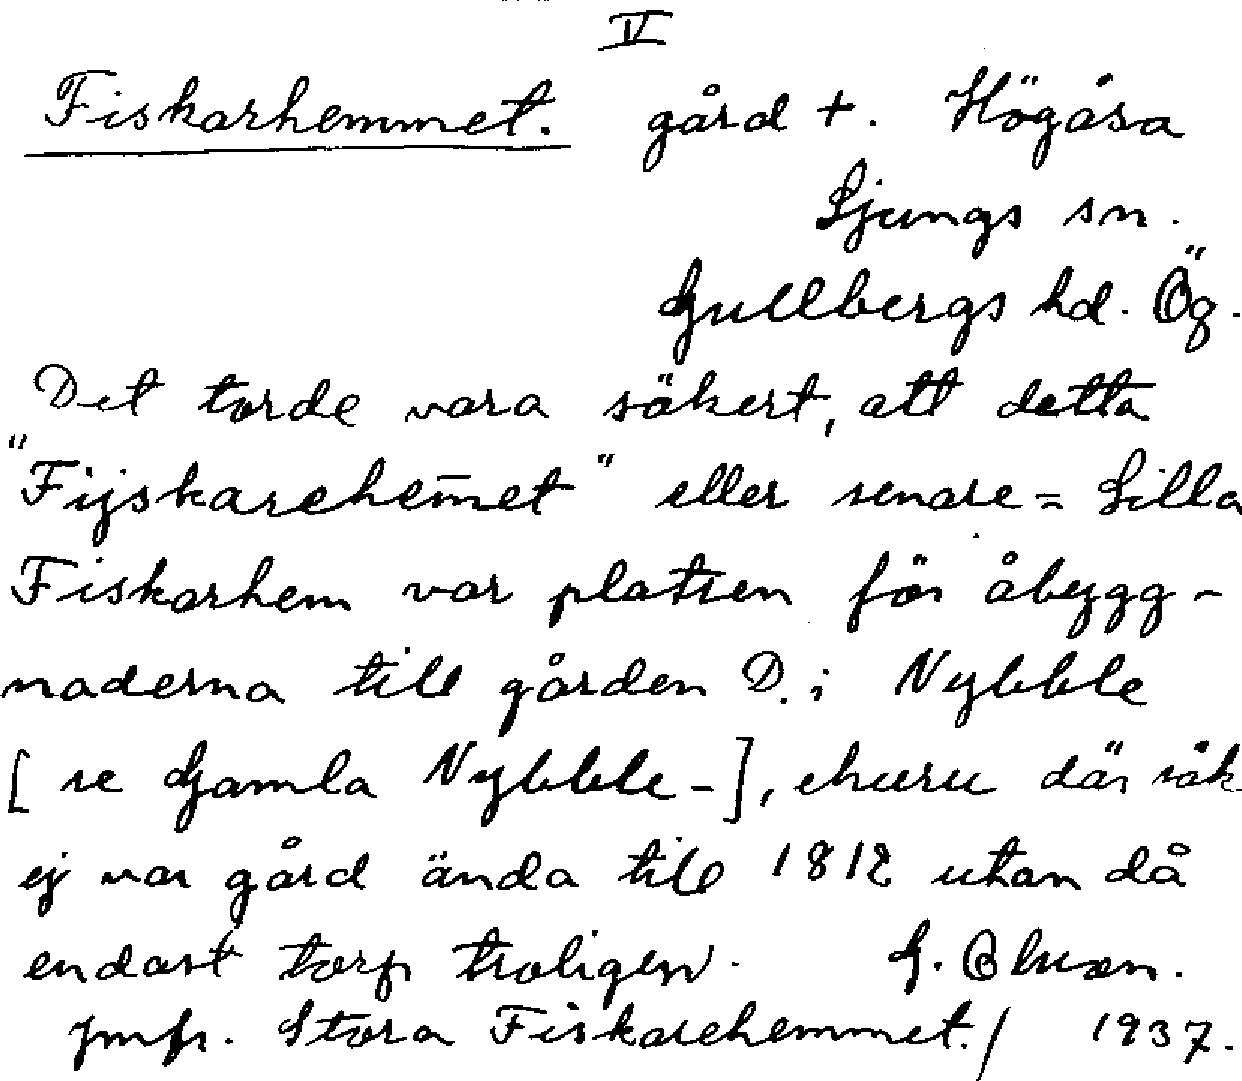 IV
Fiskarhemmet. gård +. Högåsa
Ljungs sn.
Gullbergs hd. Ög.
Det torde vara säkert, att detta
"Fijskarehem̅et" eller senare = Lilla
Fiskarhem var platsen för åbygg-
naderna till gården D. i Nybble
[se Gamla Nybble-], ehuru där
ej var gård ända till 1812 utan då
endast torp troligen. G.
jmfr. Stora Fiskarehemmet./ 1937.